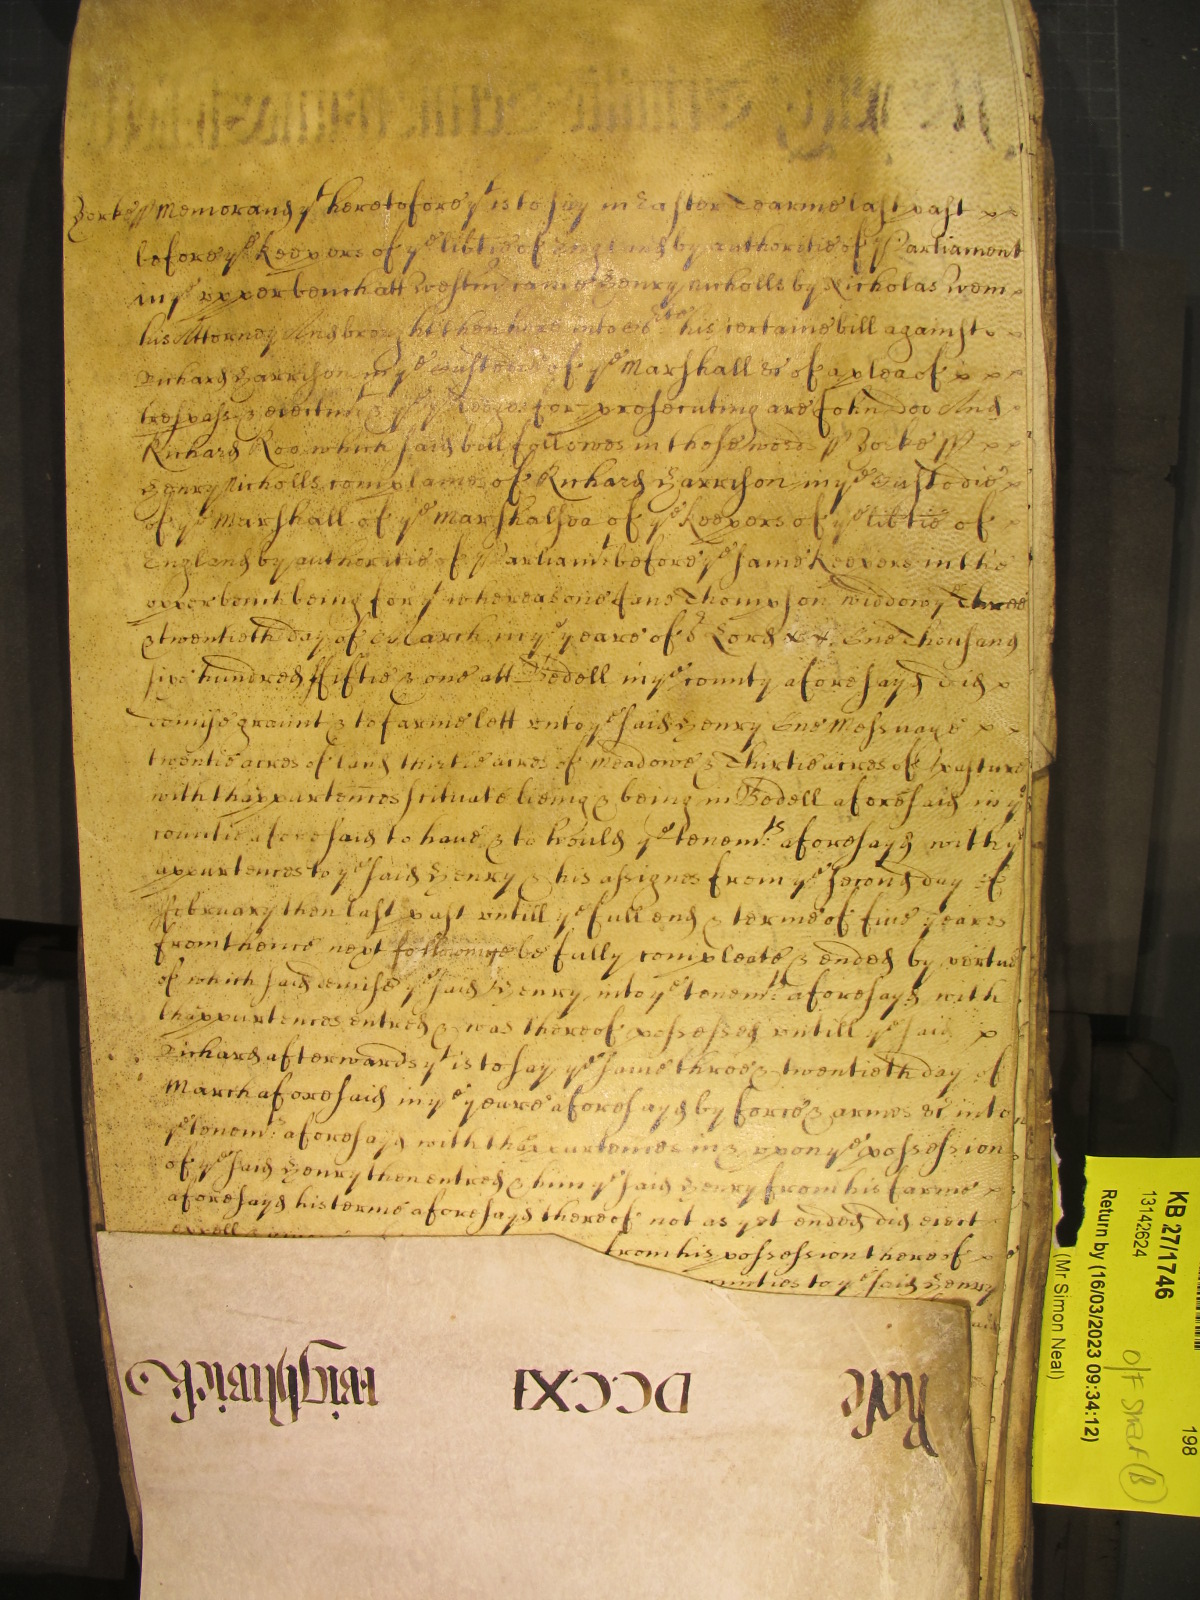 Yorke ss Memorand yt heretofore yt is to say in Easter Tearme last past
before ye Keepers of ye lib'tie of England by authoritie of Parliament
in ye upper bench att Westm' came Henry Nicholls by Nicholas
his Attorney And brought then here into ye his certaine bill against
Richard Harrison in ye Custodie of ye Marshall &c of a plea of
trespass & eiectm't & ye pledges for prosecuting are John Doo And
Richard Roo which said bill followes in these words ss Yorke ss
Henry Nicholls complaines of Richard Harrison in ye Custodie
of ye Marshall of ye Marshalsea of ye Keepers of ye lib'tie of
England by authoritie of Parliamt before ye same Keepers in the
upper bench being for yt whereas one Jane Thompson widdow ye three
& twentieth day of March in ye yeare of or Lord One Thousand
six hundred fiftie & one att Bedell in ye county aforesayd did
demise graunt & to farme lett unto ye said Henry One Messuage
twentie acres of land thirtie acres of meadowe & Thirtie acres of pasture
with thappurtences scituate lieing & being in Bedell aforesaid in ye
countie aforesaid to have & to hould ye tenemts aforesayd with ye
appurtences to ye said Henry & his assignes from ye second day of
February then last past untill ye full end & terme of five yeares
from thence next followinge be fully compleate & ended by vertue
of which said demise ye said Henry into ye tenemts aforesayd with
thappurtences entred & was thereof possessed untill ye said
Richard afterwards yt is to say ye same three & twentieth day of
March aforesaid in ye yeare aforesayd by force & armes &c into
ye tenemts aforesayd with thappurtences in & upon ye possession
of ye said Henry then entred & him ye said Henry from his farme
aforesayd his terme aforesayd thereof not as yet ended did eiect
expell
from his possession thereof
to ye said Henry
said
Rose DCCXI Wightwick
KB 27/1746
13142624
Return by (16/03/2023 09:34:12)
(Mr Simon Neal)
198